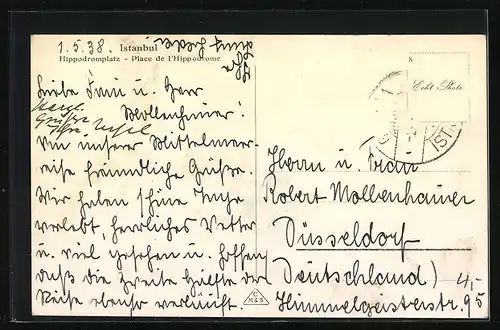 1.5.38. Istanbul
Hippodromplatz - Place de l'Hippodrome
Liebe Frau u. Herr
Mollenhauer!
Herzl.
Grüsse
Ihre
Von unserer Mittelmeer-
reise freundliche Grüße.
Wir haben schöne Tage
verlebt, herrliches Wetter
u. viel gesehen u. hoffen,
daß die zweite Hälfte der
Reise ebenso verläuft.
Ihr
8
Echt Photo
C
M&S
IST
Herrn u. Frau
Robert Mollenhauer
Düsseldorf
(Deutschland)
Himmelgeisterstr. 95
4,-